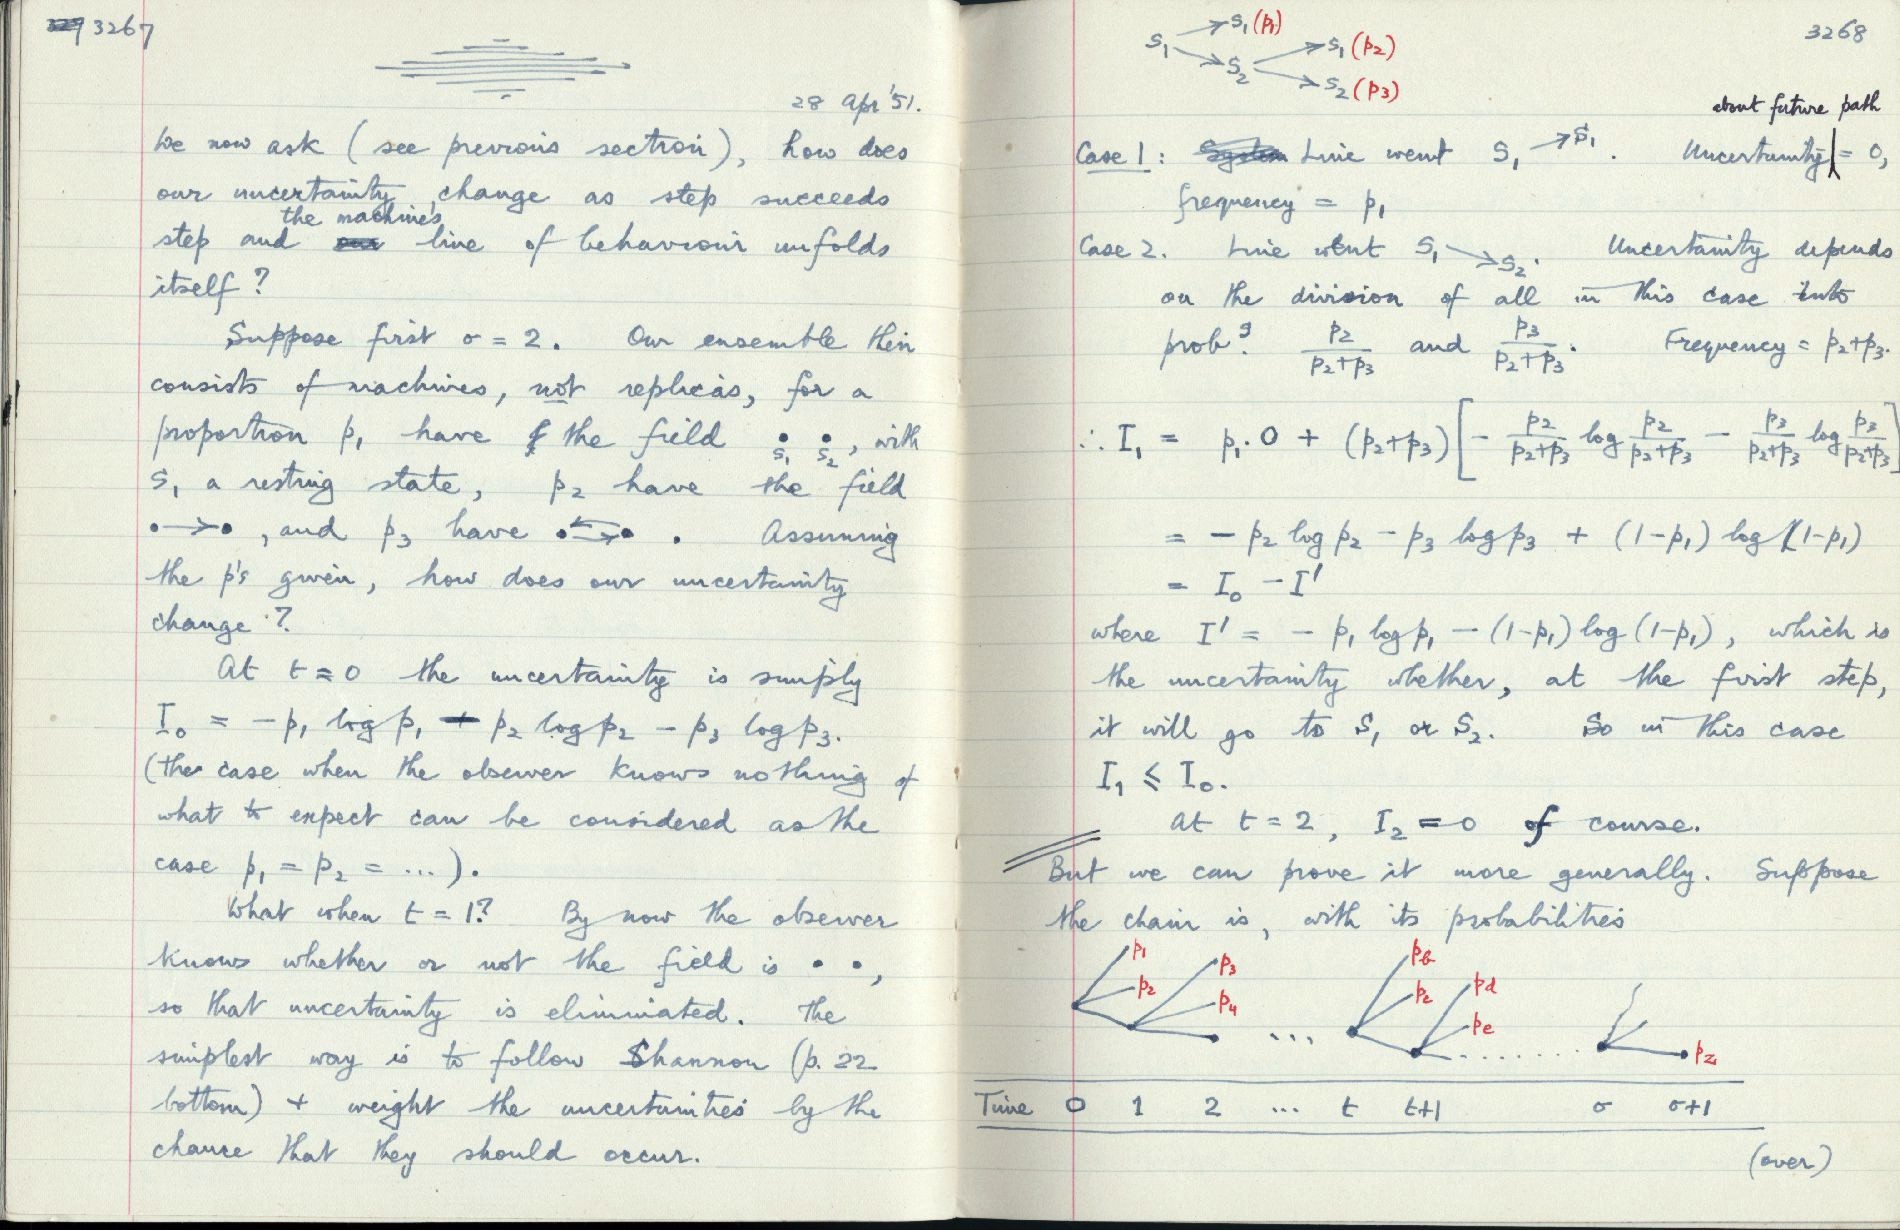 3267
28 Apr '51.
We now ask (see previous section), how does
our uncertainty change as step succeeds
step and the machine's line of behaviour unfolds
itself?
Suppose first σ = 2. Our ensemble then
consists of machines, not replicas, for a
proportion p₁ have the field • •, with
s₁ s₂
s₁ a resting state, p₂ have the field
•→•, and p₃ have •⇆•. Assuming
the p's given, how does our uncertainty
change?
At t = 0 the uncertainty is simply
I₀ = − p₁ log p₁ − p₂ log p₂ − p₃ log p₃.
(the case when the observer knows nothing of
what to expect can be considered as the
case p₁ = p₂ = ...).
What when t = 1? By now the observer
knows whether or not the field is • •,
so that uncertainty is eliminated. The
simplest way is to follow Shannon (p. 22
bottom) + weight the uncertainties by the
chance that they should occur.
3268
s₁ → s₁ (p₁)
s₁ → s₂ → s₁ (p₂)
s₂ → s₂ (p₃)
about future path
Case 1: Line went s₁ → s₁. Uncertainty = 0,
frequency = p₁
Case 2. Line went s₁ → s₂. Uncertainty depends
on the division of all in this case into
probˢ. p₂/(p₂+p₃) and p₃/(p₂+p₃). Frequency = p₂+p₃.
∴ I₁ = p₁.0 + (p₂+p₃) [− p₂/(p₂+p₃) log p₂/(p₂+p₃) − p₃/(p₂+p₃) log p₃/(p₂+p₃)]
= − p₂ log p₂ − p₃ log p₃ + (1−p₁) log (1−p₁)
= I₀ − I′
where I′ = − p₁ log p₁ − (1−p₁) log (1−p₁), which is
the uncertainty whether, at the first step,
it will go to s₁ or s₂. So in this case
I₁ ⩽ I₀.
At t = 2, I₂ = 0 of course.
But we can prove it more generally. Suppose
the chain is, with its probabilities
p₁ p₂ p₃ p₄ ... p_b p_c p_d p_e ........ p_z
Time 0 1 2 ... t t+1 σ σ+1
(over)